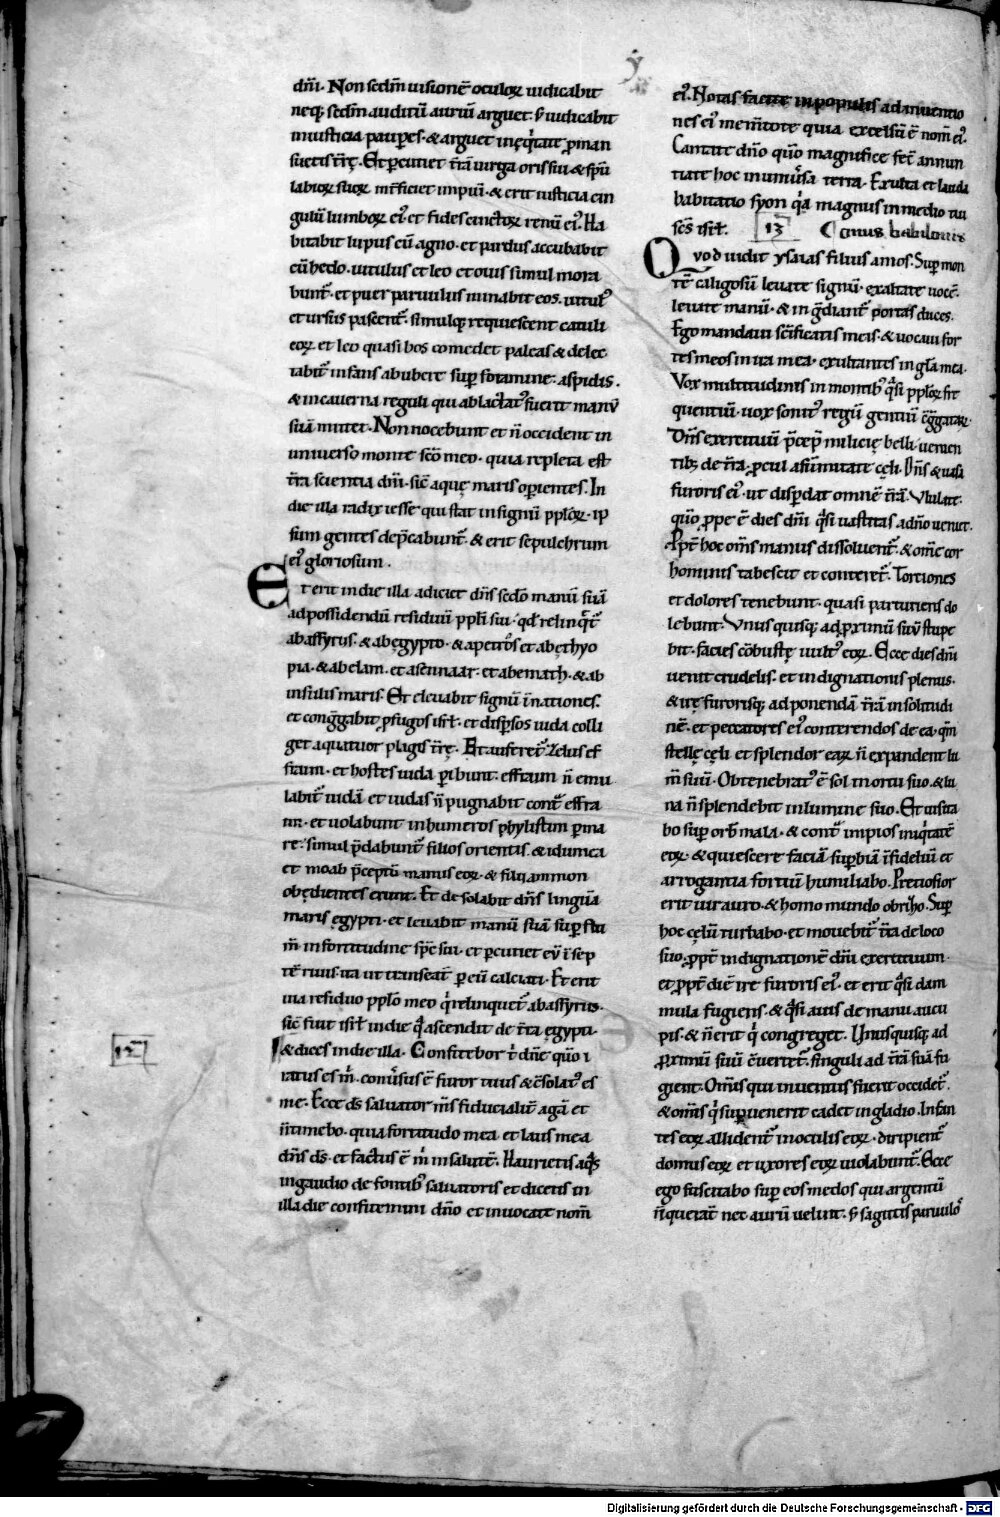 ẏ
dñi. Non scdm̄ uisionē oculoꝝ iudicabit
neqꝫ scdm̄ auditū auriū arguet. sꝫ iudicabit
iniusticia paupes. & arguet ineq̇tate ꝓ man
suetis tr̄ę. Et pcutiet tr̄ā uirga oris sui & spū
labioꝝ suoꝝ int̄ficiet impiū. & erit iusticia cin
gulū lumboꝝ ei᷒ et fides cinctoꝝ renū ei᷒. Ha
bitabit lupus cū agno. et pardus accubabit
cū hedo. uitulus et leo et ouis simul mora
bunt᷒. et puer paruulus minabit eos. uitul᷒
et ursus pascent᷒. simulqꝫ requiescent catuli
eoꝝ et leo quasi bos comedet paleas & delec
tabit᷒ infans ab ubere sup foramine aspidis.
& in cauerna reguli qui ablactat᷒ fuerit manū
suā mittet. Non nocebunt et ñ occident in
uniuerso monte scō meo. quia repleta est
tr̄a scientia dñi. sic̄ aquę maris opientes. In
die illa radix iesse qui stat in signū pploꝝ. ip
sum gentes dep̄cabunt᷒. & erit sepulchrum
ei᷒ gloriosum.
Et erit in die illa adiciet dñs scdo manū suā
ad possidendū residuū ppli sui. qd̄ relinq̇t᷒
ab assyrus. & ab egypto. & a petros et ab ęthyo
pia. & ab elam. et a sennaar. et ab emath. & ab
insulis maris. Et eleuabit signū ī nationes.
et cong̣gabit ꝓfugos isrl̄. et dispsos iuda colli
get a quatuor plagis tr̄ę. Et auferet᷒ zelus ef
fraim. et hostes iuda pibunt. effraim ñ emu
labit᷒ iudā et iudas ñ pugnabit cont᷒ effra
im. et uolabunt in humeros phylistim p ma
re. simul p̄dabunt᷒ filios orientis. & idumea
et moab p̄ceptū manus eoꝝ. & filii ammon
obędientes erunt. Et desolabit dñs linguā
maris ęgypti. et leuabit manū suā sup flu
m̄ in fortitudine spc̄ sui. et pcutiet eū ī sep
tē riuis. ita ut transeat᷒ p eū calciati. Et erit
uia residuo pplo meo q̇ relinquet᷒ ab assyrus.
sic̄ fuit isrl̄ in die q̇ ascendit de tr̄a ęgypti.
12
& dices in die illa. Confitebor t̄ dñe qm̄ i
ratus es m̄. conūsus ē furor tuus & c̄solat᷒ es
me. Ecce ds̄ saluator m̄s fiducialit᷒ agā et
ñ timebo. quia fortitudo mea et laus mea
dñs ds̄. et factus ē m̄ in salutē. Haurietis aq̇s
in gaudio de fontib᷒ saluatoris et dicetis in
illa die confitemini dño et inuocate nom̄
ei᷒. Notas facite in populis adinuentio
nes ei᷒ mem̄tote quia excelsū ē nom̄ ei᷒.
Cantate dño qm̄ magnifice fec̄ annun
tiate hoc in uniūsa terra. Exulta et lauda
habitatio syon q̇a magnus in medio tui
sc̄s isrl̄. 13 Onus babilonis
Quod uidit ysaias filius amos. Sup mon
tē caligosū leuate signū. exaltate uocē.
leuate manū. & ingrediant᷒ portas duces.
Ego mandaui sc̄ificatis meis. & uocaui for
tes meos in ira mea. exultantes in gl̄a mea.
Vox multitudinis in montib᷒ q̇si pploꝝ fre
quentiū. uox sonit᷒ regū gentiū c̄g̣gataꝝ.
Dñs exercituū p̄cep̄ milicię belli. uenien
tibꝫ de tr̄a ꝓcul a sūmitate cęli. Dñs & uasa
furoris ei᷒. ut dispdat omnē tr̄ā. Vlulate.
qm̄ ꝓpe ē dies dñi q̇si uastitas a dño ueniet.
Ppt̄ hoc om̄s manus dissoluent᷒. & om̄e cor
hominis tabescit et conteret᷒. Tortiones
et dolores tenebunt. quasi parturiens do
lebunt. Vnus quisqꝫ ad ꝓximū suū stupe
bit. facies cōbustę uult᷒ eoꝝ. Ecce dies dñi
uenit crudelis. et indignationis plenus.
& irę furorisqꝫ ad ponendā tr̄ā in solitudi
nē. et peccatores ei᷒ conterendos de ea. qm̄
stellę cęli et splendor eaꝝ ñ expandent lu
m̄ suū. Obtenebrat᷒ ē sol in ortu suo. & lu
na ñ splendebit in lumine suo. Et uisita
bo sup orb᷒ mala. & cont᷒ impios iniq̇tatē
eoꝝ. & quiescere faciā supbiā īfideliū et
arrogantia fortiū humiliabo. Preciosior
erit uir auro. & homo mundo obriho. Sup
hoc cęlū turbabo. et mouebit᷒ tr̄a de loco
suo. ꝓpt̄ indignationē dñi exercituum.
et ꝓpt̄ diē irę furoris ei᷒. et erit q̇si dam
mula fugiens. & q̇si auis de manu aucu
pis. & ñ erit q̇ congreget. Unusquisqꝫ ad
ꝓximū suū c̄uertet᷒. singuli ad tr̄ā suā fu
gient. Om̄is qui inuentus fuerit occidet᷒.
& om̄is q̇ supuenerit cadet in gladio. Infan
tes eoꝝ allident᷒ in oculis eoꝝ. diripient᷒
domus eoꝝ et uxores eoꝝ uiolabunt᷒. Ecce
ego suscitabo sup eos medos qui argentū
ñ querāt nec aurū uelint. sꝫ sagittis paruulo᷒
Digitalisierung gefördert durch die Deutsche Forschungsgemeinschaft - DFG